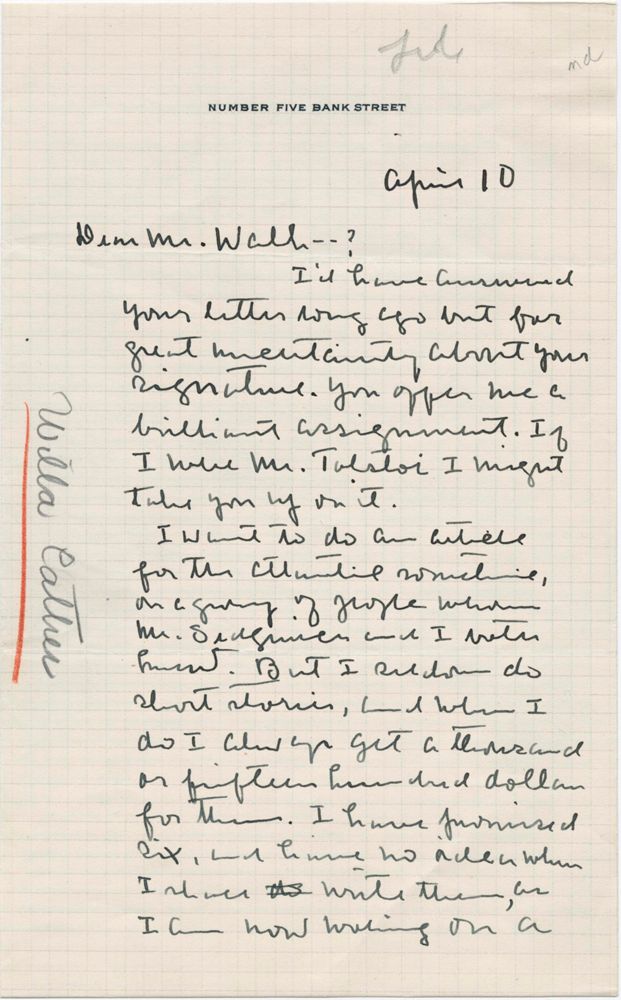 md
NUMBER FIVE BANK STREET
April 10
Dear Mr. Walk--?
I'd have answered
your letter long ago but for
great uncertainty about your
signature. You offer me a
brilliant assignment. If
I were Mr. Tolstoi I might
take you up on it.
I want to do an article
for the Atlantic sometime,
on a group of people whom
Mr. Sedgwick and I both
knew. But I seldom do
short stories, and when I
do I always get a thousand
or fifteen hundred dollars
for them. I have promised
six, and have no idea when
I shall write them, as
I am now working on a
Willa Cather